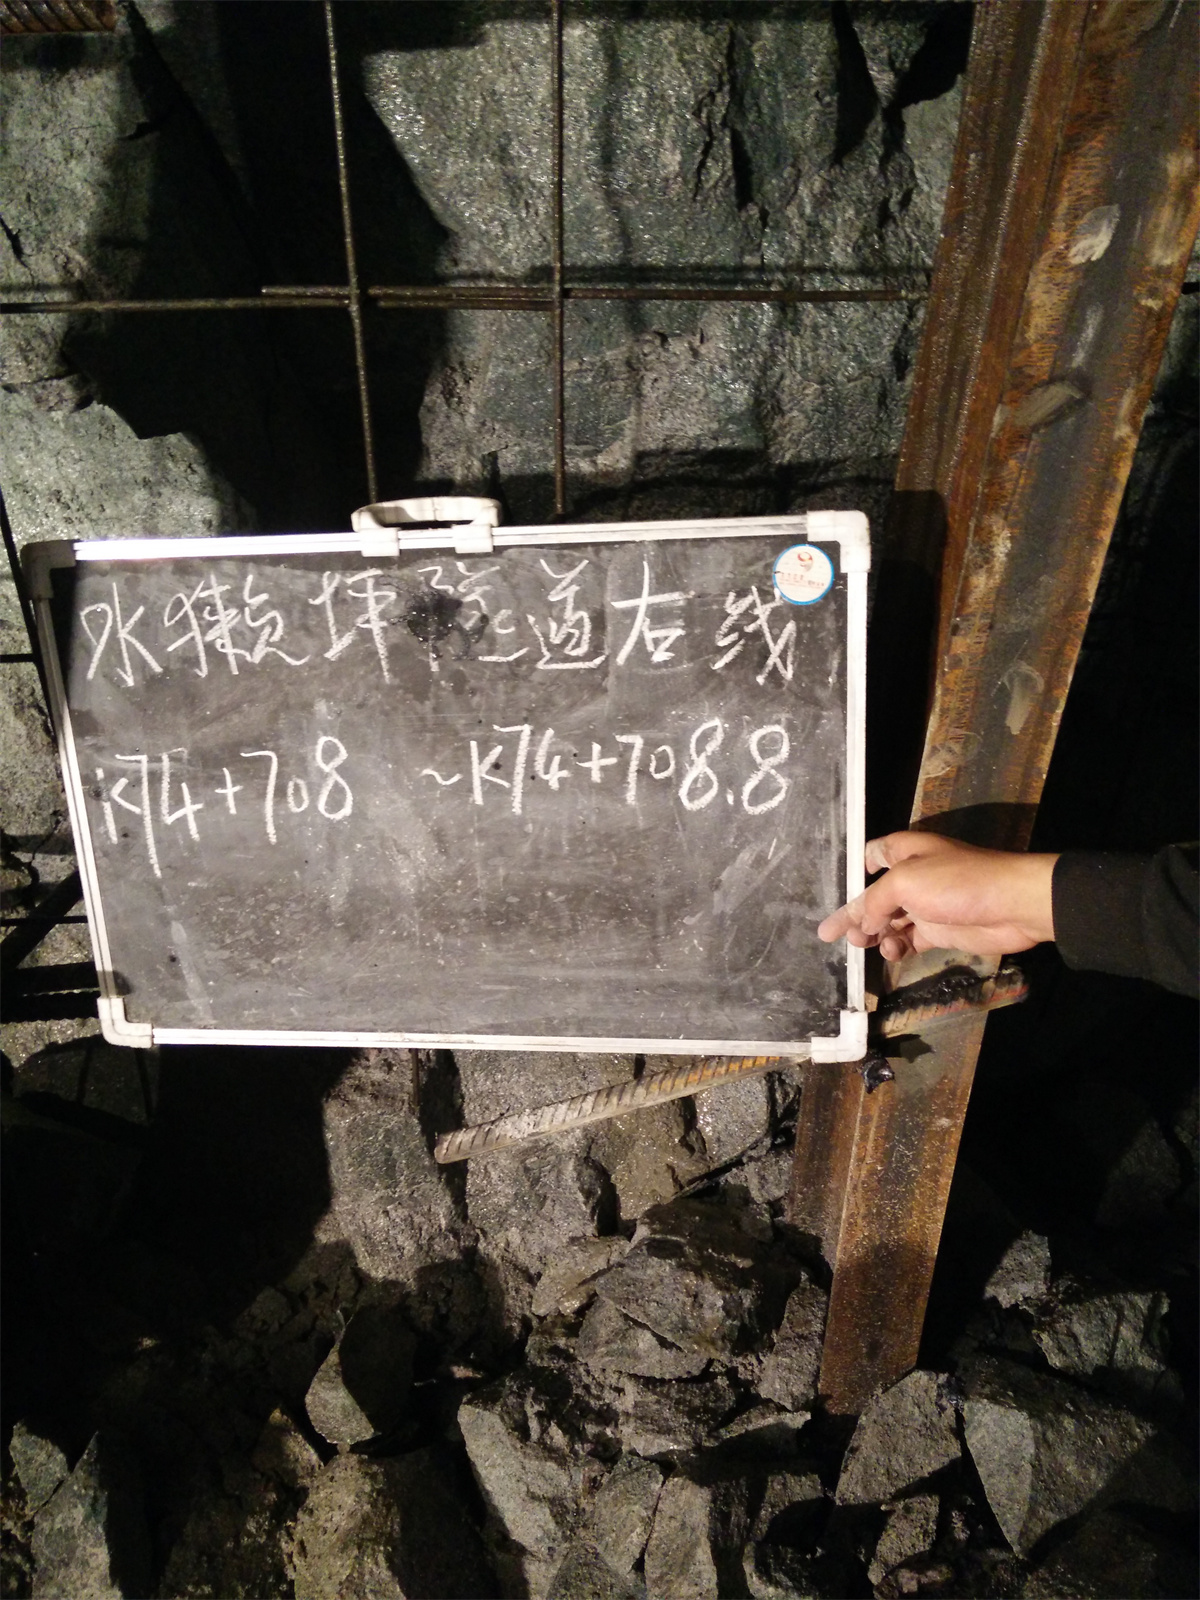 水獭坪隧道右线
K74+708 ~K74+708.8